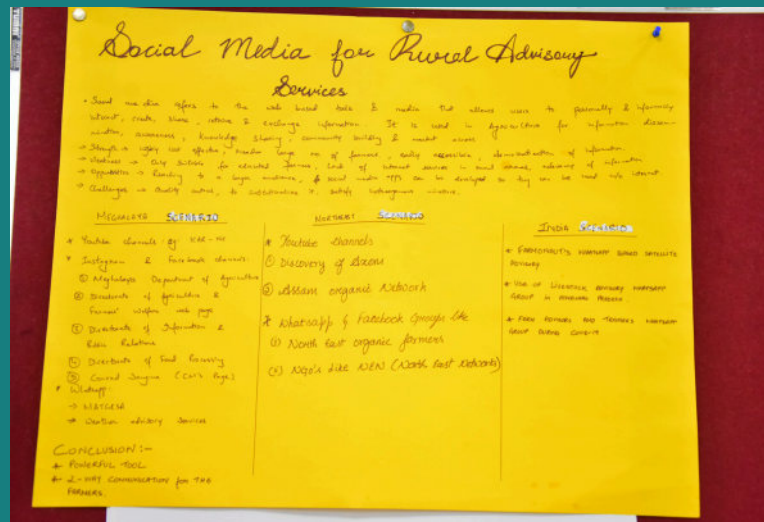 Social Media for Rural Advisory
Services
• Social media refers to the web based tools & media that allows users to personally & informally
interact, create, share, retrieve & exchange information. It is used in Agriculture for information dissem-
ination, awareness, knowledge sharing, community building & market access.
→ Strength → highly cost effective, large no. of farmers, easily accessible, democratization of information.
→ Weakness → Only suitable for educated farmers, Lack of internet services in rural areas, of information
→ Opportunities → Reaching to a larger audience, & social media apps can be developed so they can be used w/o internet.
→ Challenges → Quality control, to institutionalize it, satisfy heterogenous
MEGHALAYA SCENARIO
* Youtube channels: eg:
* Instagram & Facebook channels:
① Meghalaya Department of Agriculture
② Directorate of Agriculture &
Farmers' Welfare web page
③ Directorate of Information &
Public Relations
④ Directorate of Food Processing
⑤ Conrad Sangma (CM's Page)
* Whatsapp:
→
→ Weather advisory services
CONCLUSION:-
* POWERFUL TOOL
* 2-WAY COMMUNICATION FOR THE
FARMERS.
NORTHEAST SCENARIO
* Youtube channels
① Discovery of Axom
② Assam Organic Network
* Whatsapp & Facebook Groups like
(i) North East organic farmers
(ii) NGO's like NEN (North East Network)
INDIA SCENARIO
* FARMONAUT'S WHATSAPP BASED SATELLITE
ADVISORY
* USE OF LIVESTOCK ADVISORY WHATSAPP
GROUP IN PRADESH
* FARM ADVISORS AND WHATSAPP
GROUP DURING COVID-19